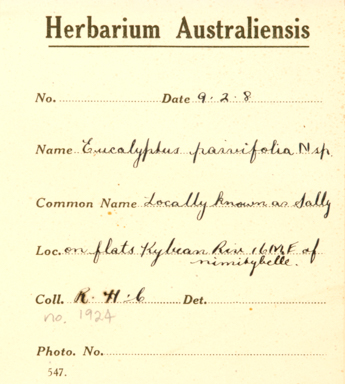 Herbarium Australiensis
No. Date 9.2.8
Name Eucalyptus parvifolia N sp.
Common Name Locally known as Sally
Loc. on flats Kybean Riv. 16 M E of
nimitybelle.
Coll. R. H. C Det.
no. 1924
Photo. No.
547.